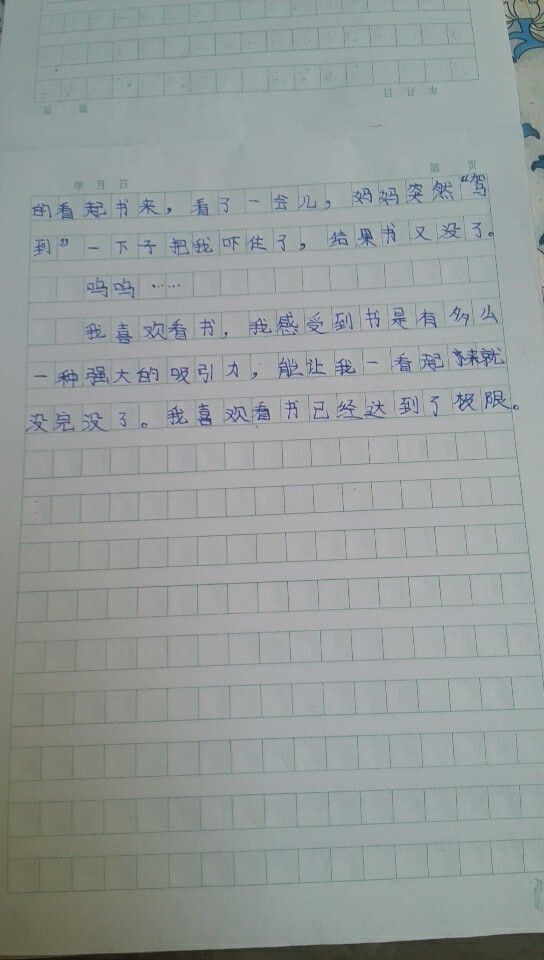 页 第
日 月 年
年 月 日 第 页
的看起书来，看了一会儿，妈妈突然“驾
到”一下子把我吓住了，结果书又没了。
呜呜……
我喜欢看书，我感受到书是有多么
一种强大的吸引力，能让我一看起来就
没完没了。我喜欢看书已经达到了极限。